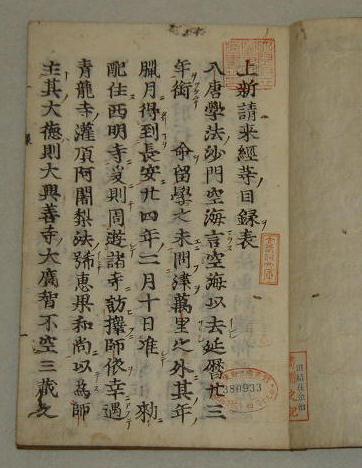 上新請來經等目録表
入唐學法沙門空海言空海以去延暦廿三
年銜　命留學之末問津萬里之外其年
臘月得到長安廿四年二月十日准　勅
配住西明寺爰則周遊諸寺訪擇師依幸遇
青龍寺灌頂阿闍梨法号惠果和尚以為師
主其大德則大興善寺大廣智不空三藏之
380933